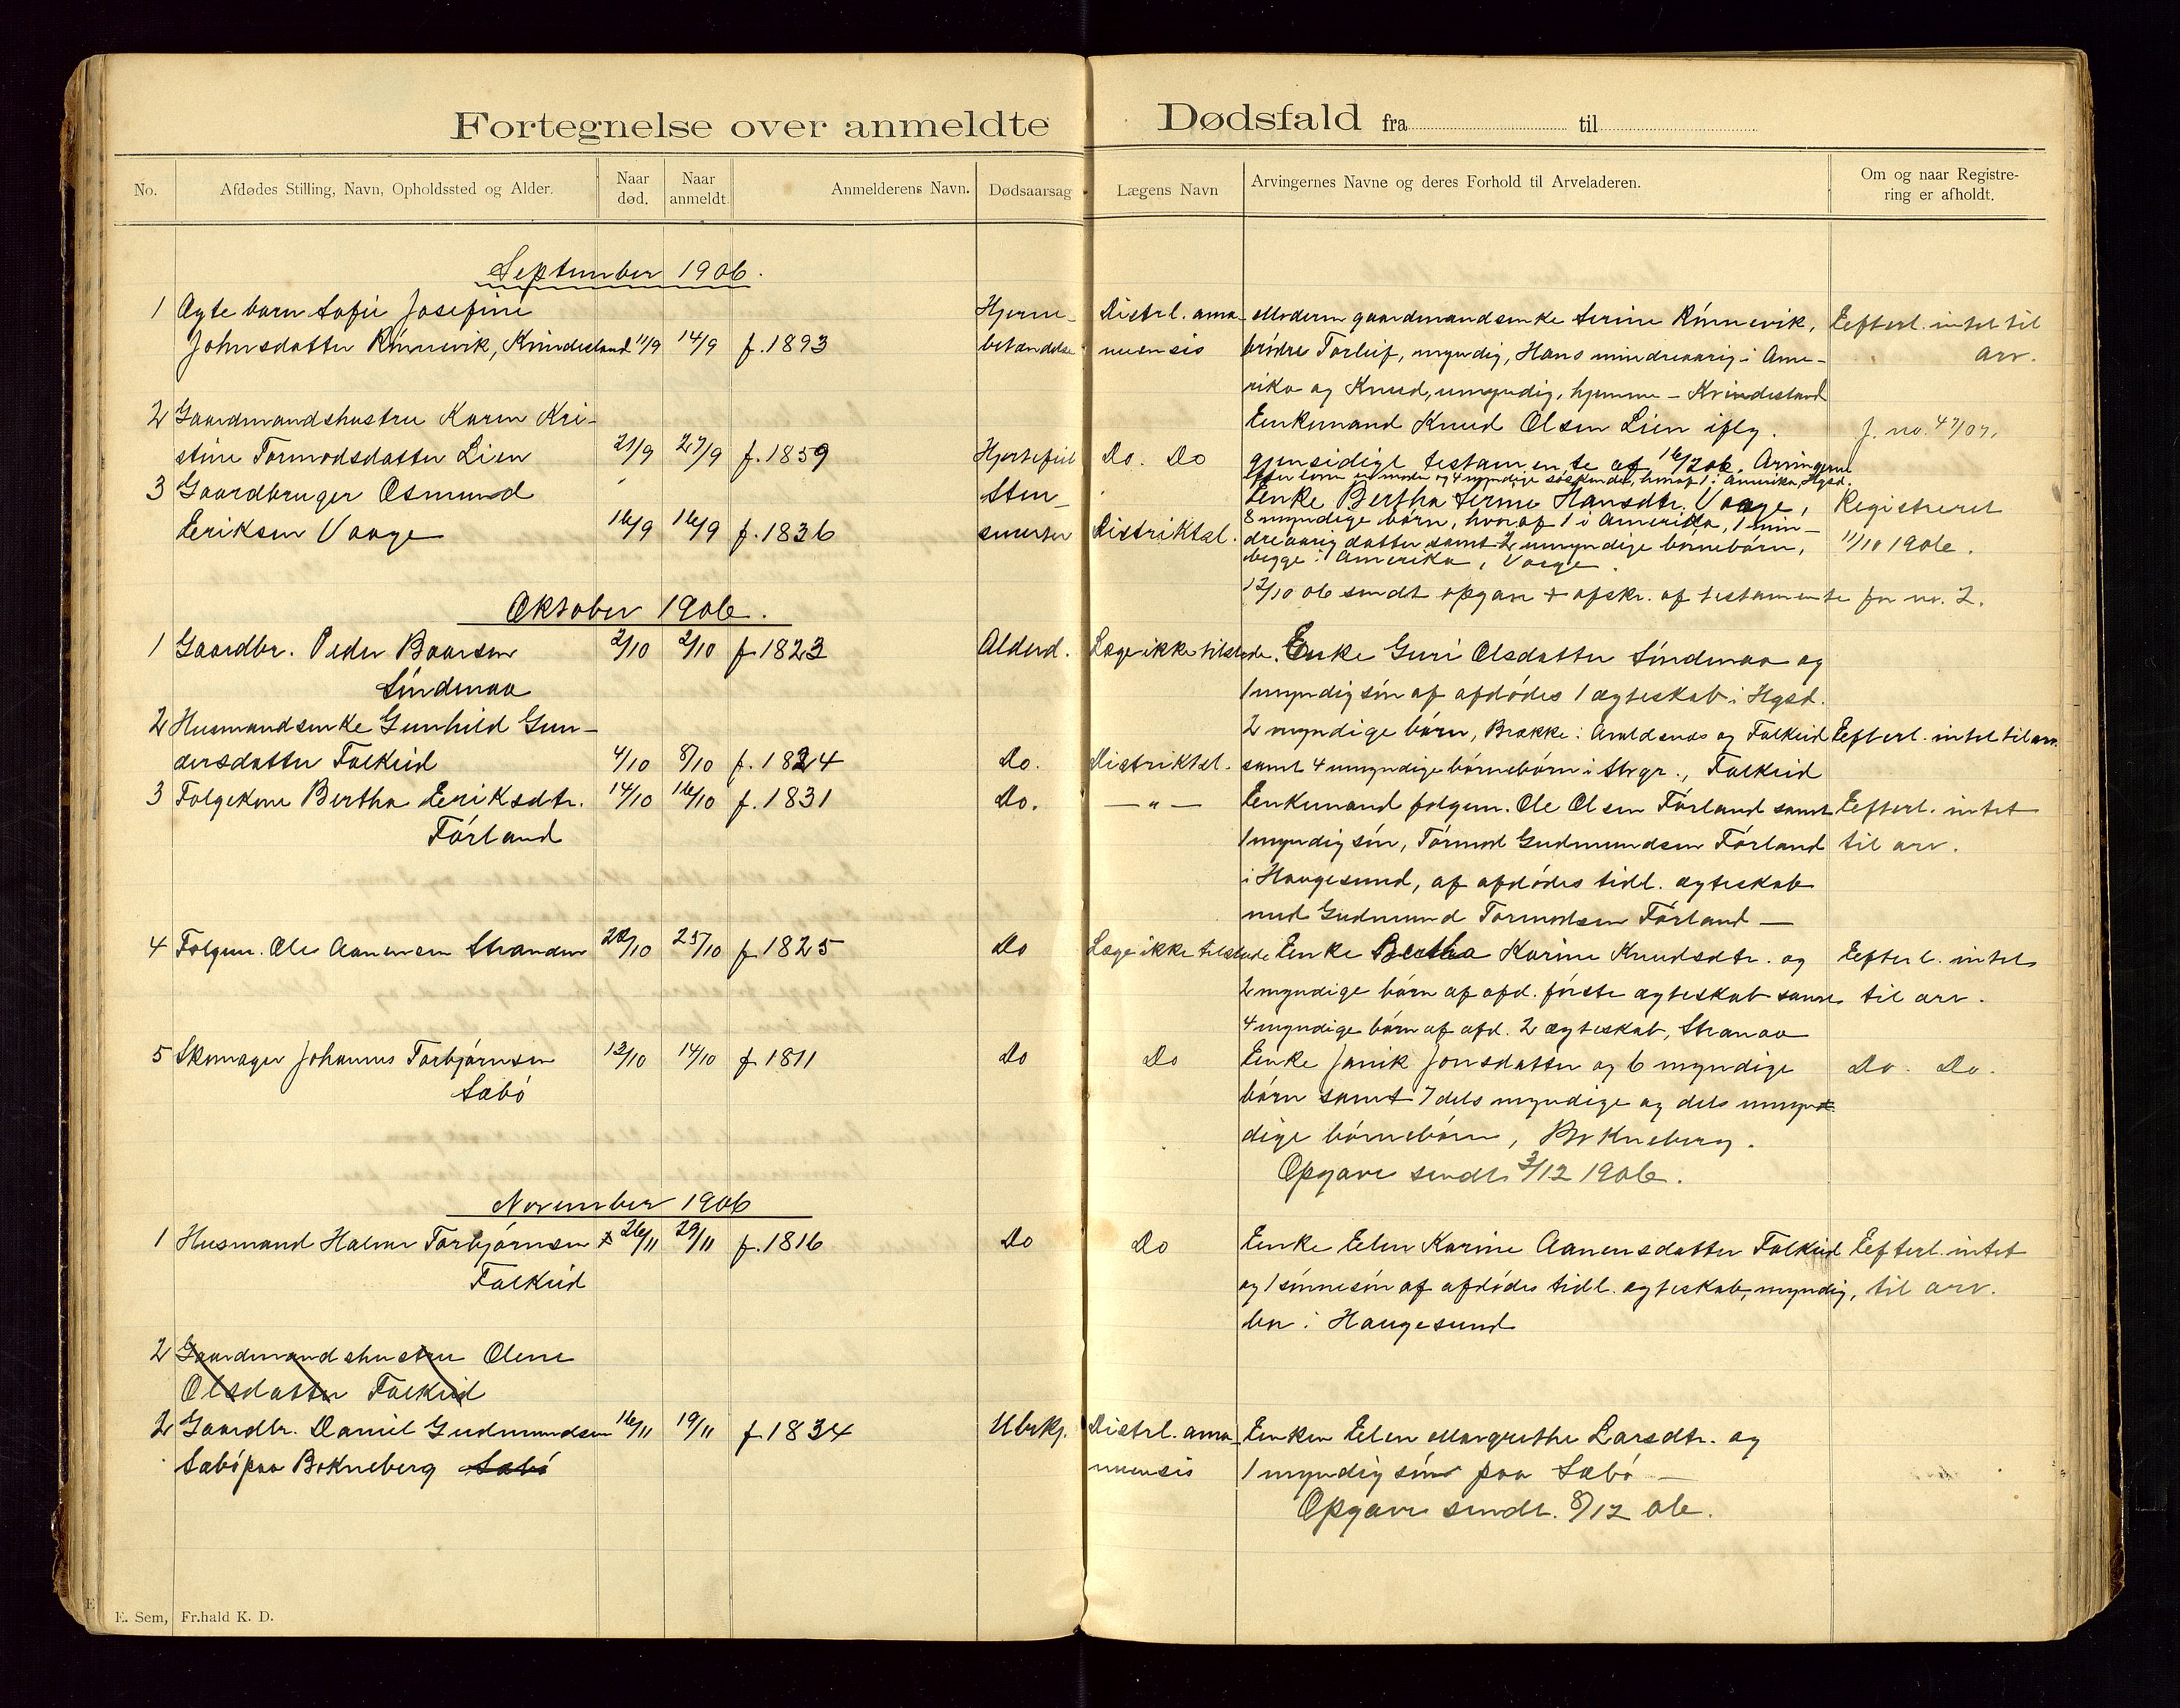 Fortegnelse over anmeldte Dødsfald fra til
No.
Afdødes Stilling, Navn, Opholdssted og Alder.
Naar død.
Naar anmeldt.
Anmelderens Navn.
Dødsaarsag
Lægens Navn
Arvingernes Navne og deres Forhold til Arveladeren.
Om og naar Registrering er afholdt.
September 1906.
1 Ægte barn Sofie Josefine Hjerne- Distrl. ama- Moderen gaardmandsenke Serine Rønnevik, Efterl. intet til
Johnsdatter Rønnevik, Kvindesland 11/9 14/9 f. 1893 betændelse nuensis brødre Torleif, myndig, Hans mindreaarig i Ame- arv.
rika og Knud, umyndig, hjemme - Kvindesland
2 Gaardmandshustru Karen Kri- Enkemand Knud Olsen Lien iflg. J. no. 47/07.
stine Tormodsdatter Lien 21/9 27/9 f. 1859 Hjertefeil Do. Do gjensidigt testamente af 16/2 06. Arvingerne
3 Gaardbruger Osmund Sten- Enke Bertha Serine Hansdtr. Vaage, Registreret
Eriksen Vaage 16/9 16/9 f. 1836 smerter Distriktsl. 8 myndige børn, hvoraf 1 i Amerika, 1 min- 11/10 1906.
dreaarig datter samt 2 umyndige børnebørn,
begge i Amerika, Vaage.
12/10 06 sendt opgave + afskr. af testamente for no. 2.
Oktober 1906.
1 Gaardbr. Peder Baarsen 2/10 2/10 f. 1823 Alderd. Læge ikke tilstede. Enke Guri Olsdatter Søndenaa og
Søndenaa 1 myndig søn af afdødes 1 ægteskab i Hgsd.
2 Husmandsenke Gunhild Gun- 2 myndige børn, Brække i Avaldsnes og Falkeid Efterl. intet til arv.
dersdatter Falkeid 4/10 8/10 f. 1824 Do. Distriktsl. samt 4 umyndige børnebørn i Stvgr., Falkeid
3 Folgekone Bertha Eriksdtr. 14/10 16/10 f. 1831 Do. — " — Enkemand folgem. Ole Olsen Førland samt Efterl. intet
Førland 1 myndig søn, Tormod Gudmundsen Førland til arv.
i Haugesund, af afdødes tidl. ægteskab
med Gudmund Tormodsen Førland —
4 Folgem. Ole Aanensen Stranden 22/10 25/10 f. 1825 Do Læge ikke tilstede Enke Bertha Karine Knudsdtr. og Efterl. intet
2 myndige børn af afd. første ægteskab samt til arv.
4 myndige børn af afd. 2 ægteskab, Stranaa
5 Skomager Johannes Torbjørnsen 13/10 14/10 f. 1811 Do Do Enke Janik Jonsdatter og 6 myndige Do. Do.
Sæbø børn samt 7 dels myndige og dels umyn-
dige børnebørn, Bokneberg.
Opgave sendt 3/12 1906.
November 1906
1 Husmand Halvor Torbjørnsen 26/11 29/11 f. 1816 Do Do Enke Elen Karine Aanensdatter Falkeid Efterl. intet
Falkeid og 1 sønnesøn af afdødes tidl. ægteskab, myndig, til arv.
bor i Haugesund
2 Gaardmandshustru Olene
Olsdatter Falkeid
2 Gaardbr. Daniel Gudmundsen 16/11 19/11 f. 1834 Ubekj. Distrl. ama- Enken Elen Margrethe Larsdtr. og
Sæbø paa Bokneberg Sæbø nuensis 1 myndig søn paa Sæbø —
Opgave sendt. 8/12 06.
E. Sem, Fr.hald K. D.